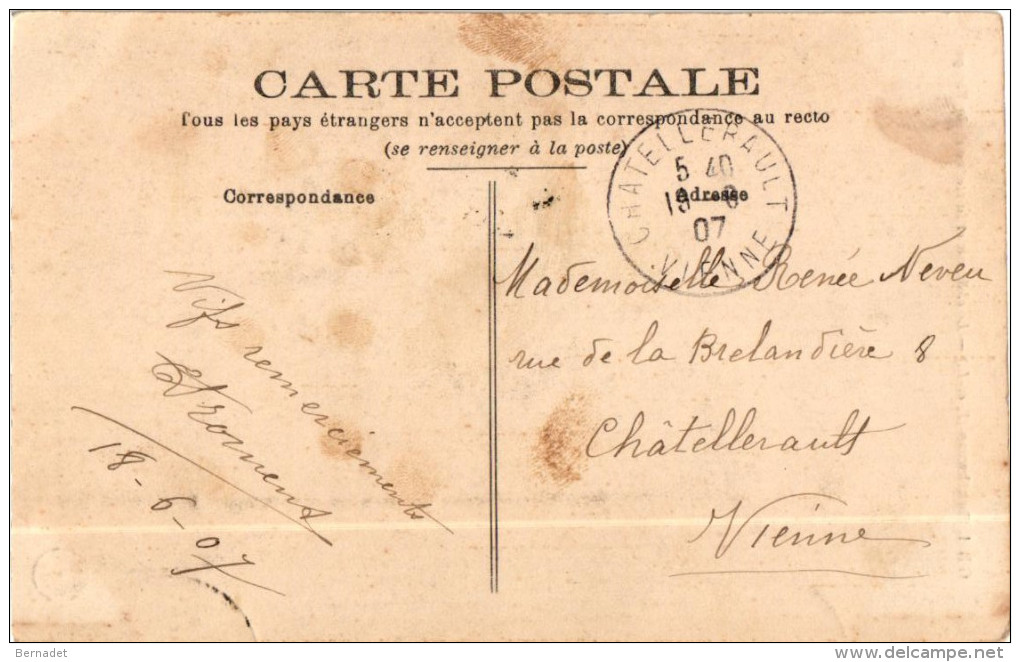 CARTE POSTALE
Tous les pays étrangers n'acceptent pas la correspondance au recto
(se renseigner à la poste)
Correspondance
Adresse
CHATELLERAULT
5 40
19 - 6
07
VIENNE
Vifs remerciements
18-6-07
Mademoiselle Renée Neveu
rue de la Brelandière 8
Châtellerault
Vienne
Bernadet
delcampe.net